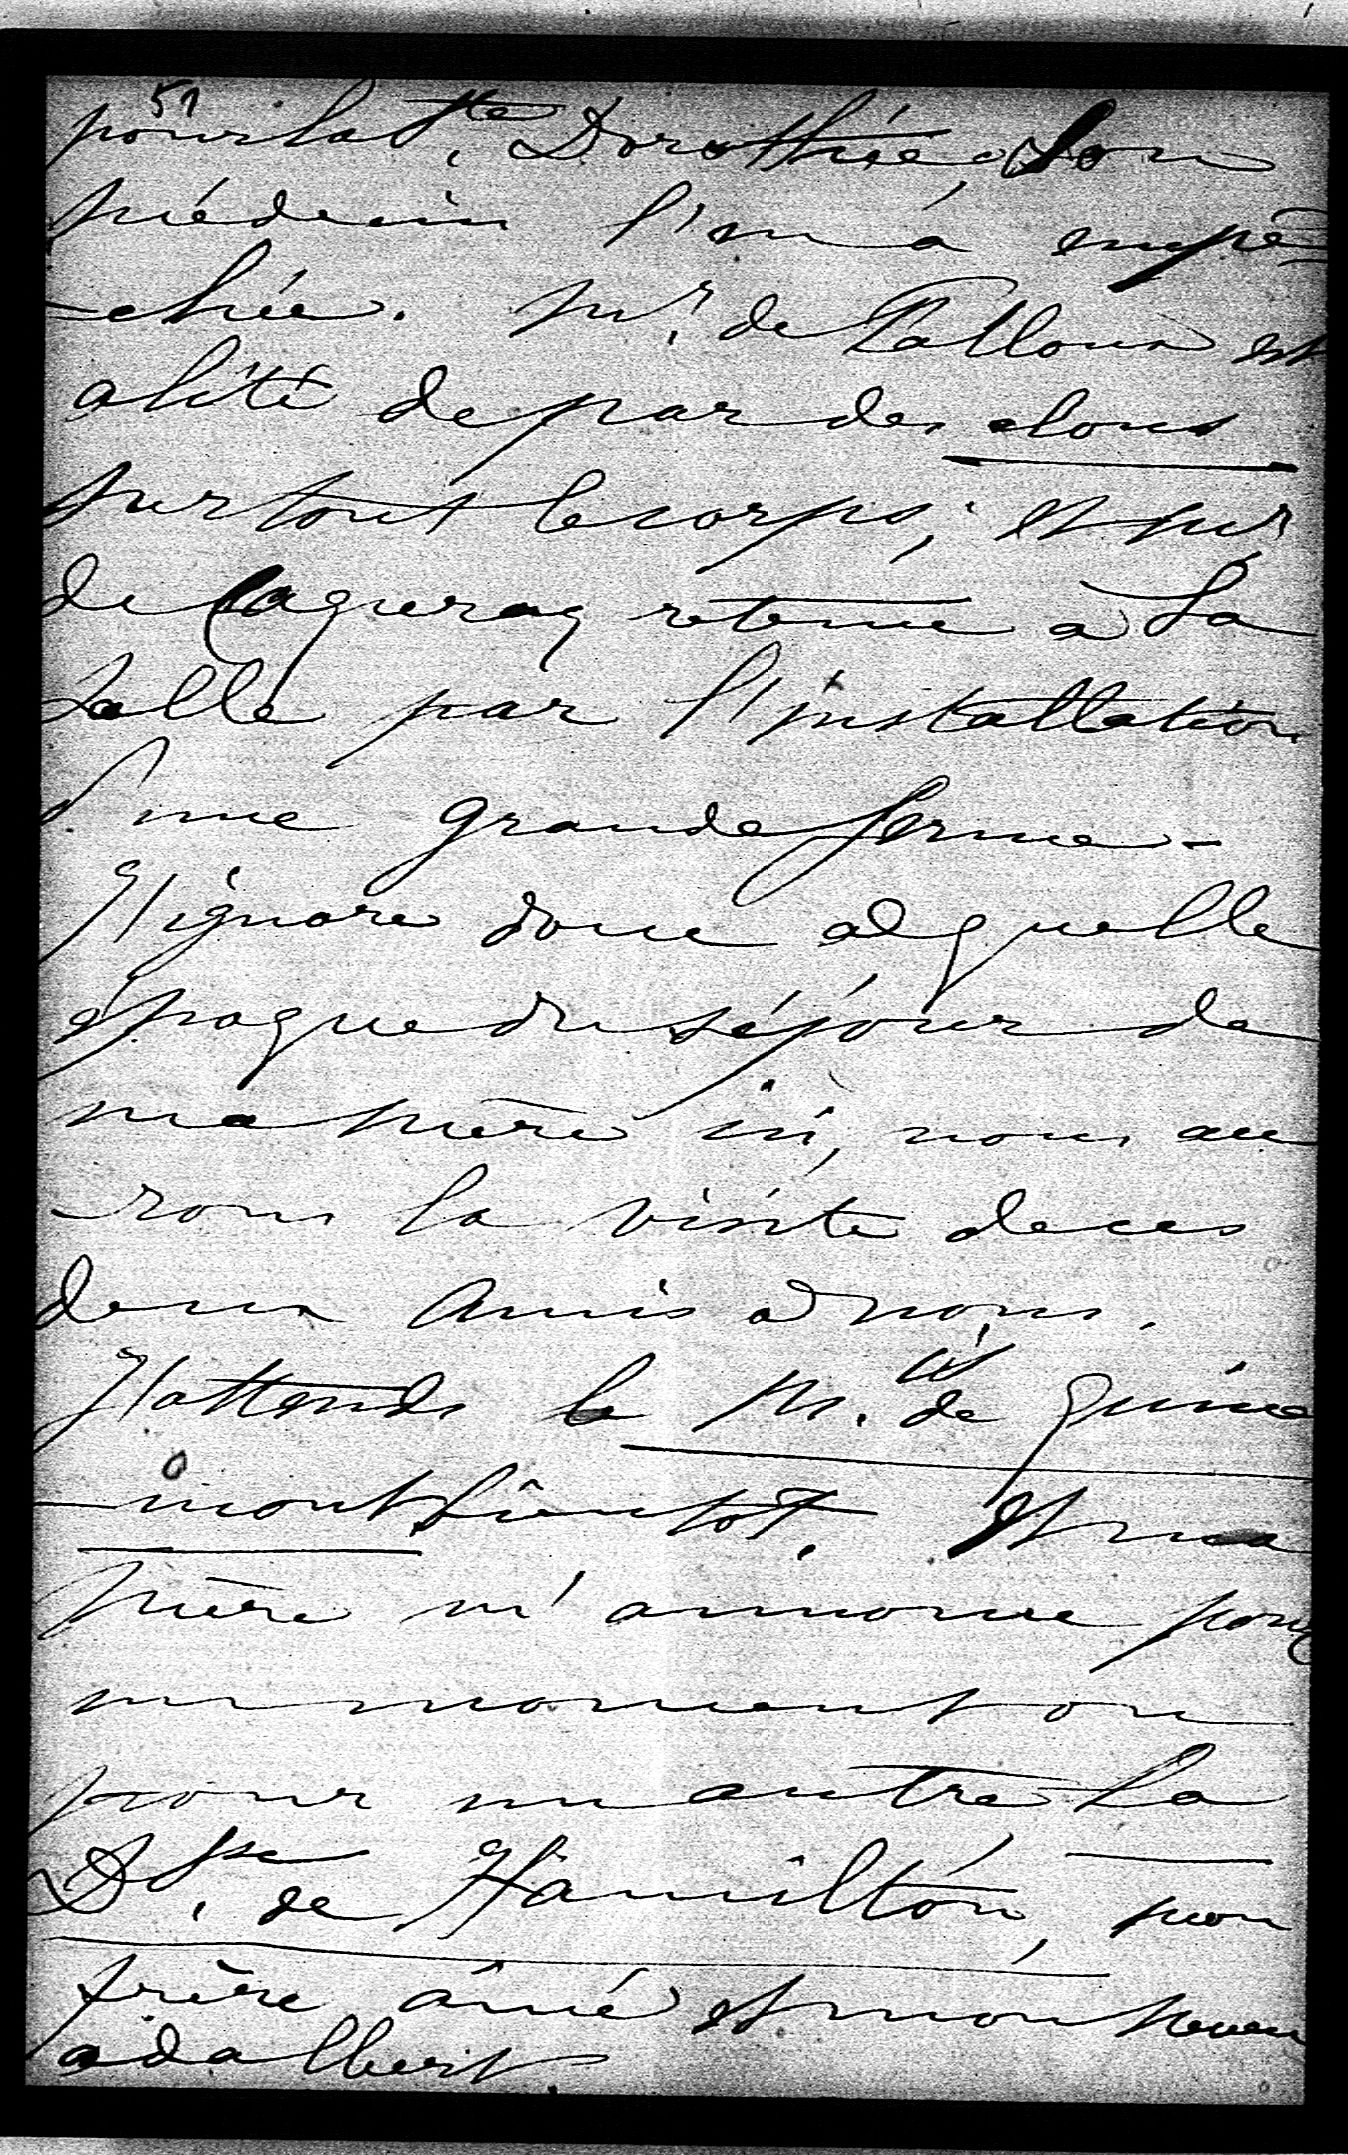 51
pour la Ste. Dorothée, Son
médecin l'en a empê-
-chée. Mr. de Falloux est
alité de par des clous
sur tout le corps; et Mr.
de Caqueray retenu à La
Salle par l'installation
d'une grande ferme -
J'ignore donc à quelle
époque du séjour de
ma mère ici, nous au
-rons la visite de ces
deux amis à nous.
J'attends le M.is de Quine
-mont bientôt. Et ma
mère m'annonce pour
un moment ou
pour un autre La
D.sse de Hamilton, mon
frère aîné et mon neveu
adalbert.